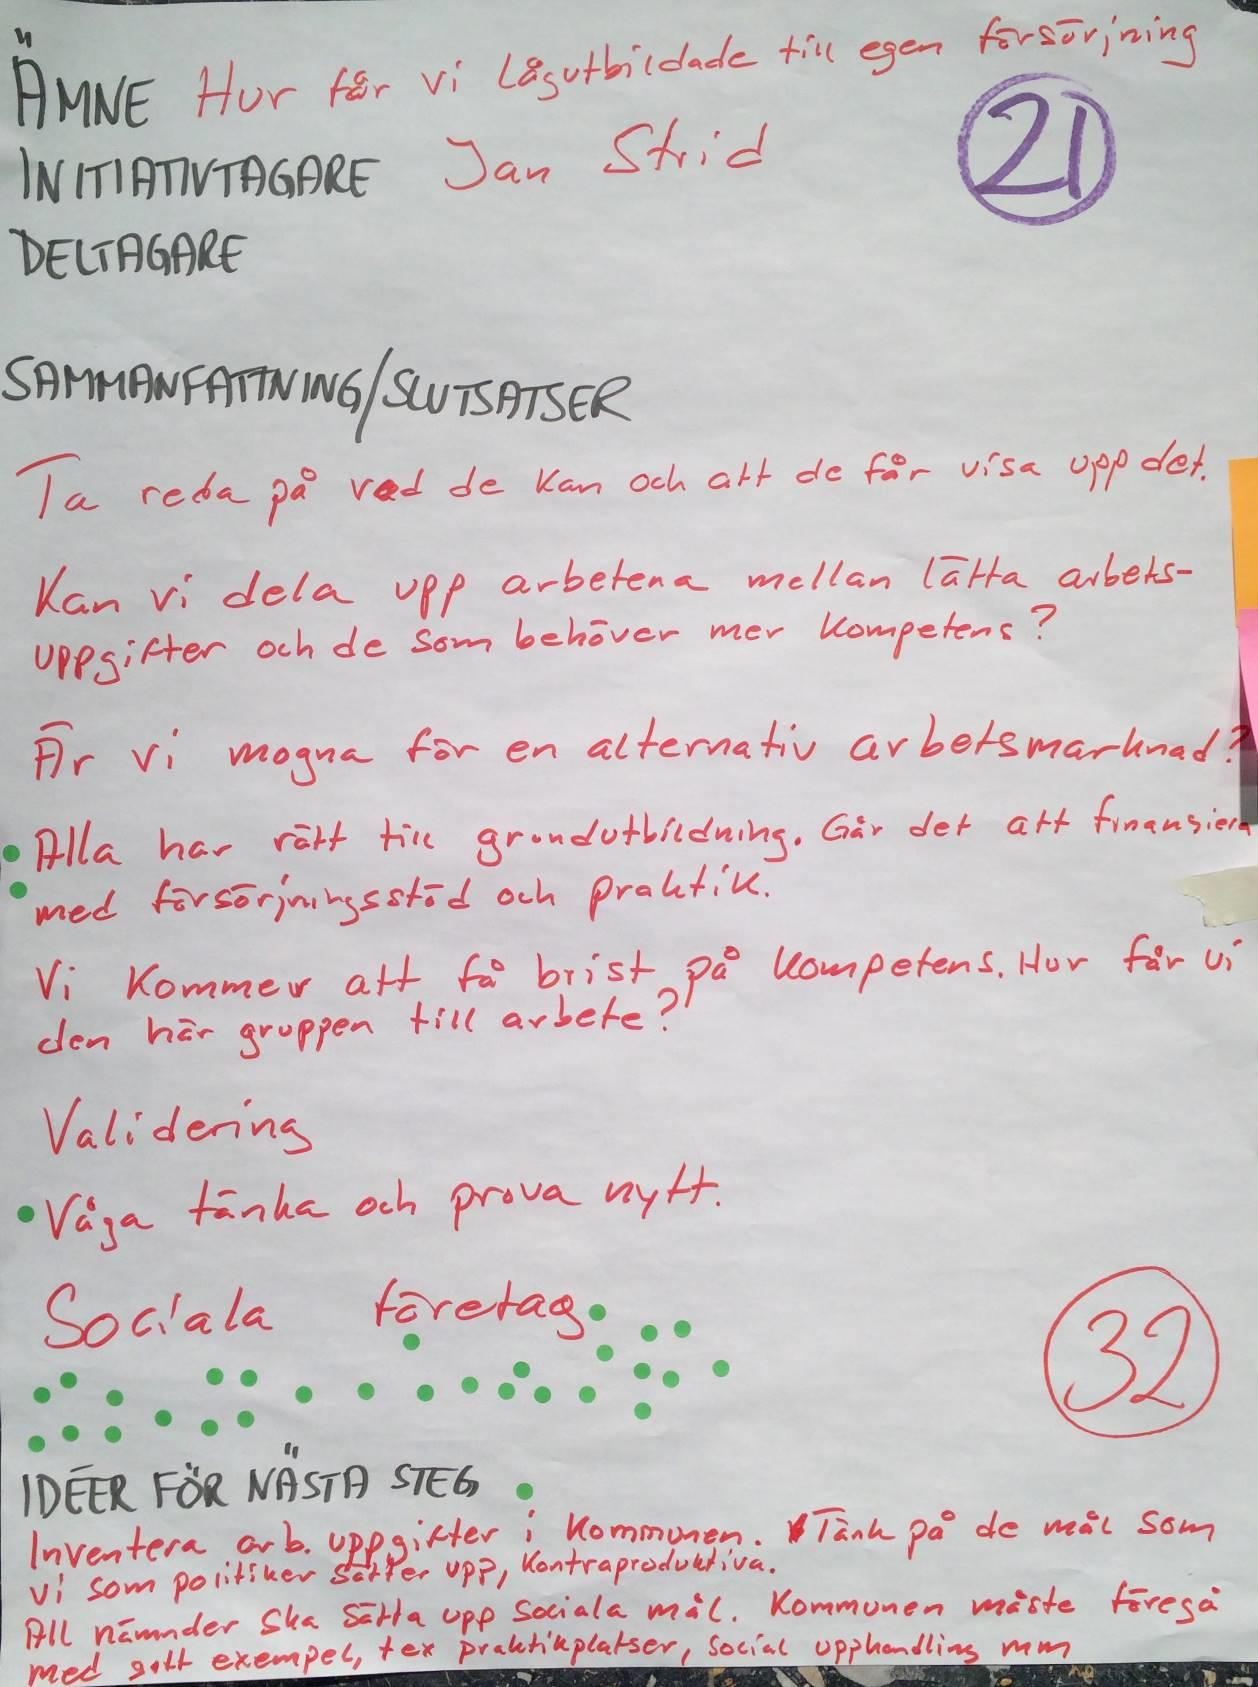 ÄMNE Hur får vi lågutbildade till egen försörjning
21
INITIATIVTAGARE Jan Strid
DELTAGARE
SAMMANFATTNING/SLUTSATSER
Ta reda på vad de kan och att de får visa upp det.
Kan vi dela upp arbetena mellan lätta arbets-
uppgifter och de som behöver mer kompetens?
Är vi mogna för en alternativ arbetsmarknad?
Alla har rätt till grundutbildning. Går det att finansiera
med försörjningsstöd och praktik.
Vi kommer att få brist på kompetens. Hur får vi
den här gruppen till arbete?
Validering
Våga tänka och prova nytt.
Sociala företag
32
IDÉER FÖR NÄSTA STEG
Inventera arb. uppgifter i kommunen. Tänk på de mål som
vi som politiker sätter upp, kontraproduktiva.
All nämnder ska sätta upp sociala mål. Kommunen måste föregå
med gott exempel, tex praktikplatser, social upphandling mm